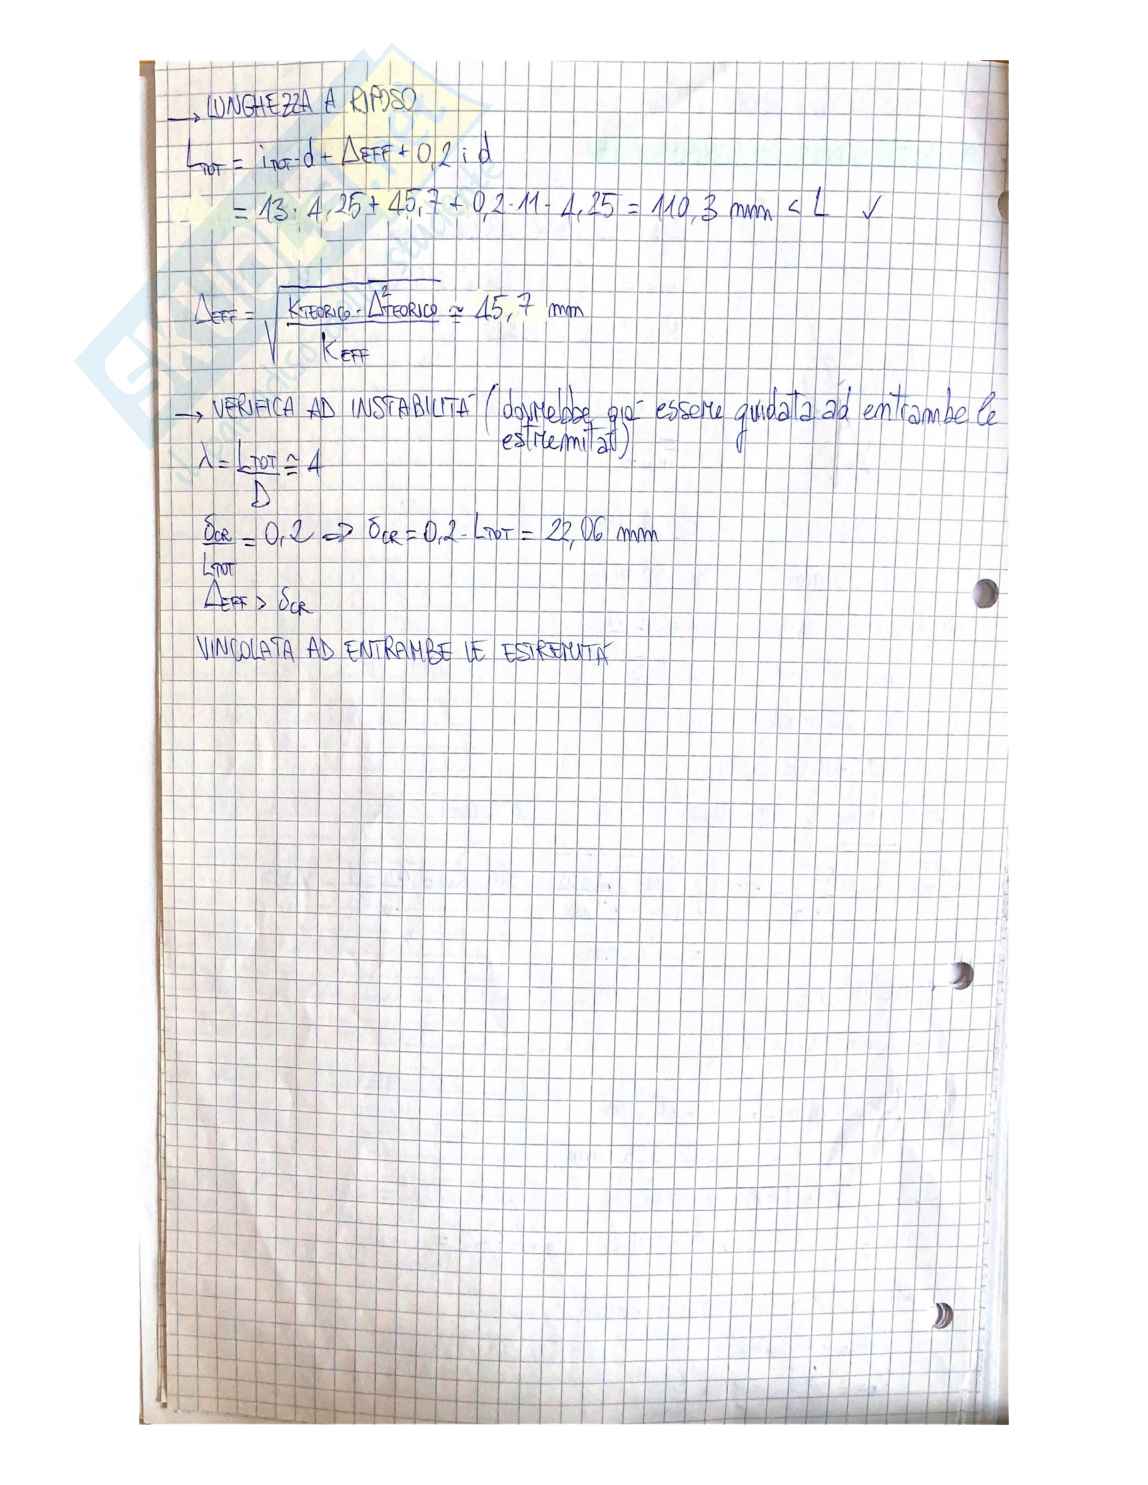 → LUNGHEZZA A RIPOSO
L_TOT = i_TOT · d + Δ_EFF + 0,2 i d
= 13 · 4,25 + 45,7 + 0,2 · 11 · 4,25 = 110,3 mm < L ✓
Δ_EFF = √(K_TEORICO · Δ²_TEORICO / K_EFF) ≃ 45,7 mm
→ VERIFICA AD INSTABILITÀ (dovrebbe già essere guidata ad entrambe le
estremità)
λ = L_TOT / D ≅ 4
δ_CR / L_TOT = 0,2 => δ_CR = 0,2 · L_TOT = 22,06 mm
Δ_EFF > δ_CR
VINCOLATA AD ENTRAMBE LE ESTREMITÀ